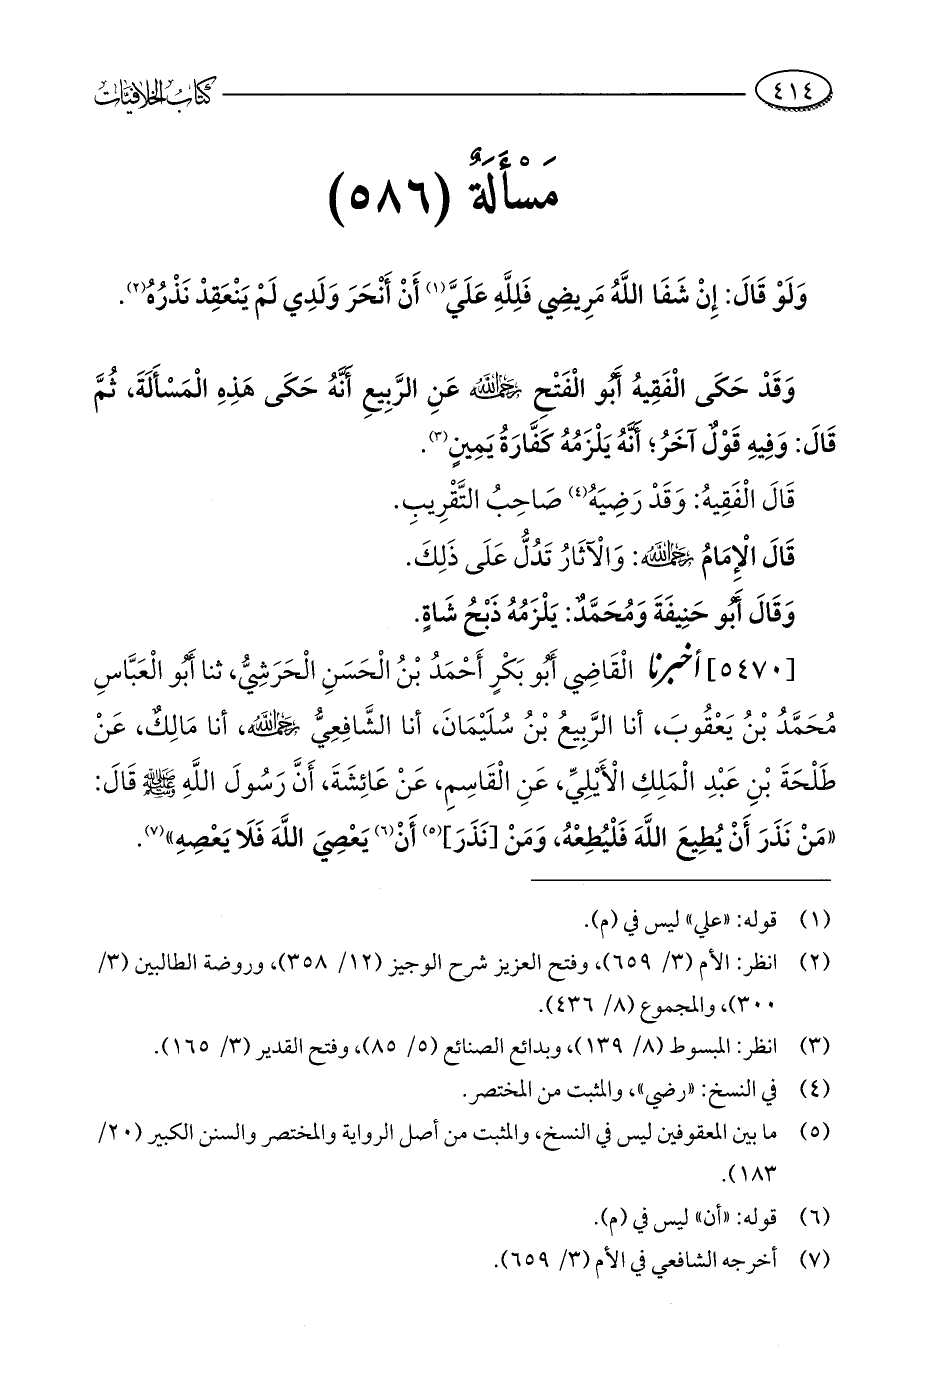 ٤١٤ كتاب الخلافيات
مَسْأَلَةٌ (٥٨٦)
وَلَوْ قَالَ: إِنْ شَفَا اللَّهُ مَرِيضِي فَلِلَّهِ عَلَيَّ(١) أَنْ أَنْحَرَ وَلَدِي لَمْ يَنْعَقِدْ نَذْرُهُ(٢).
وَقَدْ حَكَى الْفَقِيهُ أَبُو الْفَتْحِ رَحِمَهُ اللَّهُ عَنِ الرَّبِيعِ أَنَّهُ حَكَى هَذِهِ الْمَسْأَلَةَ، ثُمَّ
قَالَ: وَفِيهِ قَوْلٌ آخَرُ؛ أَنَّهُ يَلْزَمُهُ كَفَّارَةُ يَمِينٍ(٣).
قَالَ الْفَقِيهُ: وَقَدْ رَضِيَهُ(٤) صَاحِبُ التَّقْرِيبِ.
قَالَ الْإِمَامُ رَحِمَهُ اللَّهُ: وَالْآثَارُ تَدُلُّ عَلَى ذَلِكَ.
وَقَالَ أَبُو حَنِيفَةَ وَمُحَمَّدٌ: يَلْزَمُهُ ذَبْحُ شَاةٍ.
[٥٤٧٠] أخبرنا الْقَاضِي أَبُو بَكْرٍ أَحْمَدُ بْنُ الْحَسَنِ الْحَرَشِيُّ، ثنا أَبُو الْعَبَّاسِ
مُحَمَّدُ بْنُ يَعْقُوبَ، أنا الرَّبِيعُ بْنُ سُلَيْمَانَ، أنا الشَّافِعِيُّ رَحِمَهُ اللَّهُ، أنا مَالِكٌ، عَنْ
طَلْحَةَ بْنِ عَبْدِ الْمَلِكِ الْأَيْلِيِّ، عَنِ الْقَاسِمِ، عَنْ عَائِشَةَ، أَنَّ رَسُولَ اللَّهِ ﷺ قَالَ:
«مَنْ نَذَرَ أَنْ يُطِيعَ اللَّهَ فَلْيُطِعْهُ، وَمَنْ [نَذَرَ](٥) أَنْ(٦) يَعْصِيَ اللَّهَ فَلَا يَعْصِهِ»(٧).
(١) قوله: «علي» ليس في (م).
(٢) انظر: الأم (٣/ ٦٥٩)، وفتح العزيز شرح الوجيز (١٢/ ٣٥٨)، وروضة الطالبين (٣/
٣٠٠)، والمجموع (٨/ ٤٣٦).
(٣) انظر: المبسوط (٨/ ١٣٩)، وبدائع الصنائع (٥/ ٨٥)، وفتح القدير (٣/ ١٦٥).
(٤) في النسخ: «رضي»، والمثبت من المختصر.
(٥) ما بين المعقوفين ليس في النسخ، والمثبت من أصل الرواية والمختصر والسنن الكبير (٢٠/
١٨٣).
(٦) قوله: «أن» ليس في (م).
(٧) أخرجه الشافعي في الأم (٣/ ٦٥٩).